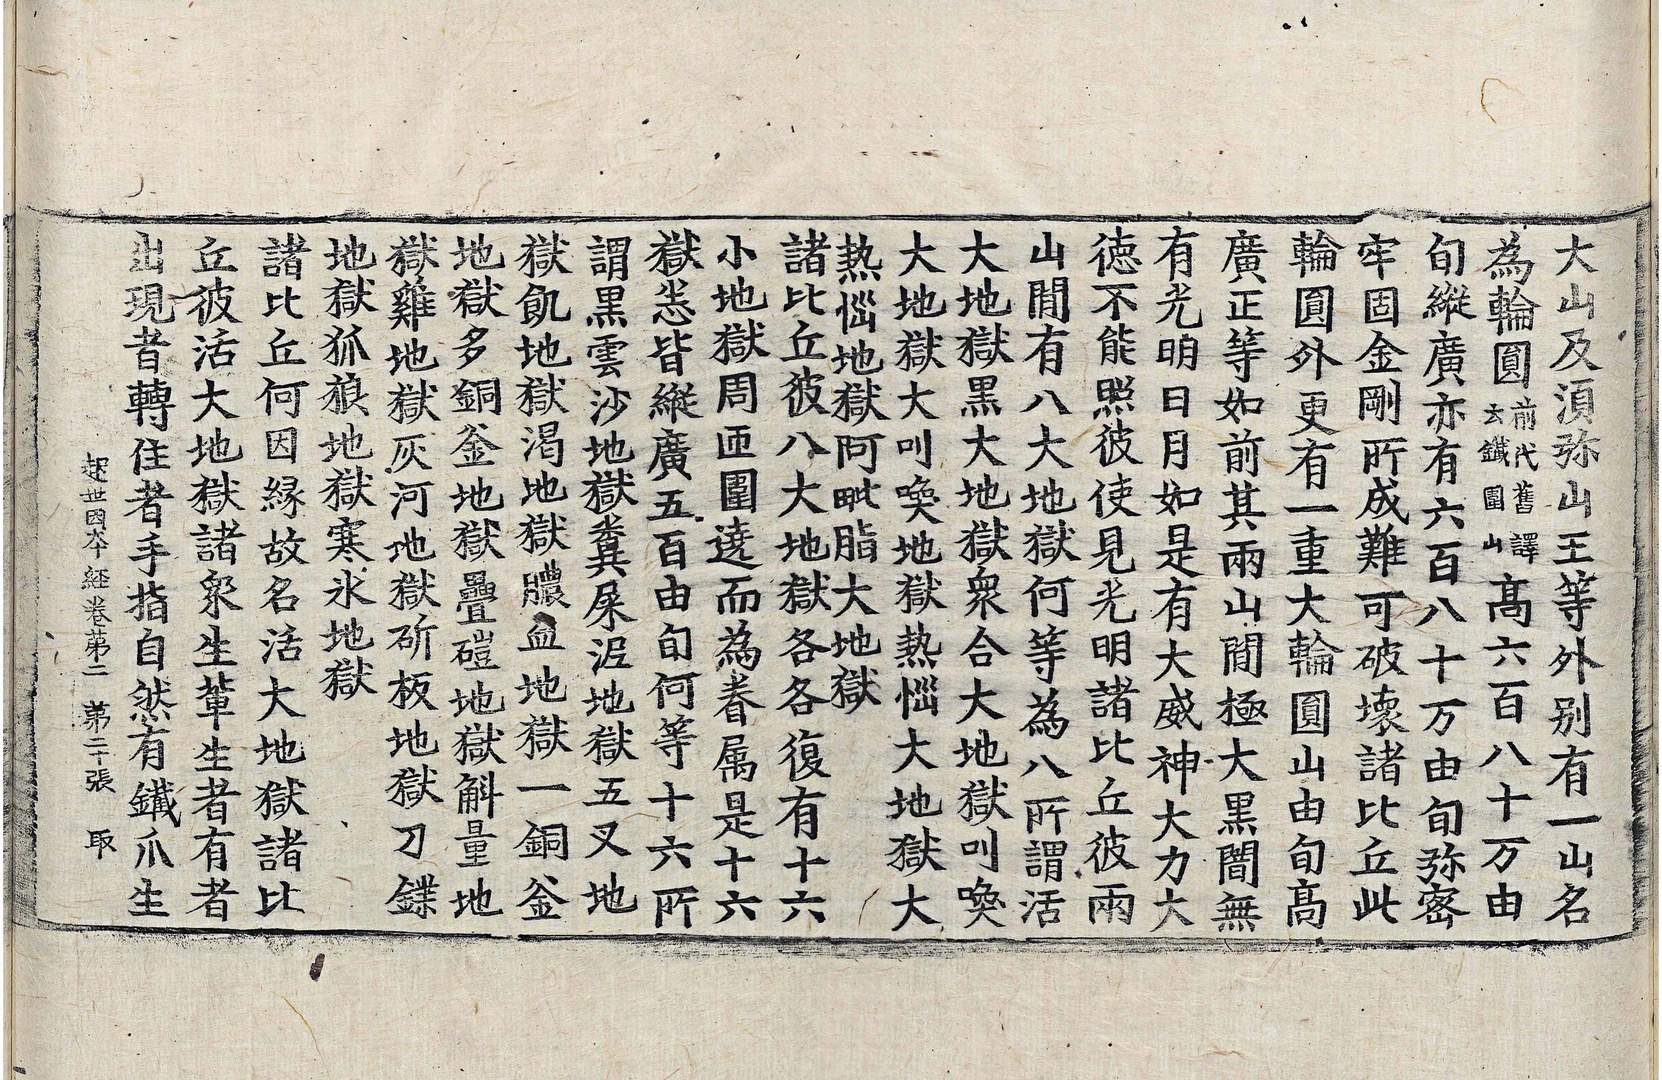 大山及湏弥山王等外别有一山名
為輪圓前代舊譯云鐵圍山髙六百八十万由
旬縱廣亦有六百八十万由旬弥宻
牢固金剛所成難可破壞諸比丘此
輪圓外更有一重大輪圓山由旬髙
廣正等如前其兩山間極大黒闇無
有光明日月如是有大威神大力大
徳不能照彼使見光明諸比丘彼兩
山間有八大地獄何等為八所謂活
大地獄黒大地獄衆合大地獄叫喚
大地獄大叫喚地獄熱惱大地獄大
熱惱地獄阿毗脂大地獄
諸比丘彼八大地獄各各復有十六
小地獄周匝圍遶而為眷属是十六
獄悉皆縱廣五百由旬何等十六所
謂黒雲沙地獄糞屎泥地獄五叉地
獄飢地獄渇地獄膿血地獄一銅釜
地獄多銅釜地獄疊磑地獄斛量地
獄雞地獄灰河地獄斫板地獄刀鍱
地獄狐狼地獄寒氷地獄
諸比丘何因縁故名活大地獄諸比
丘彼活大地獄諸衆生軰生者有者
出現者轉住者手指自然有鐵爪生
起世因夲経卷苐二　苐二十張　取